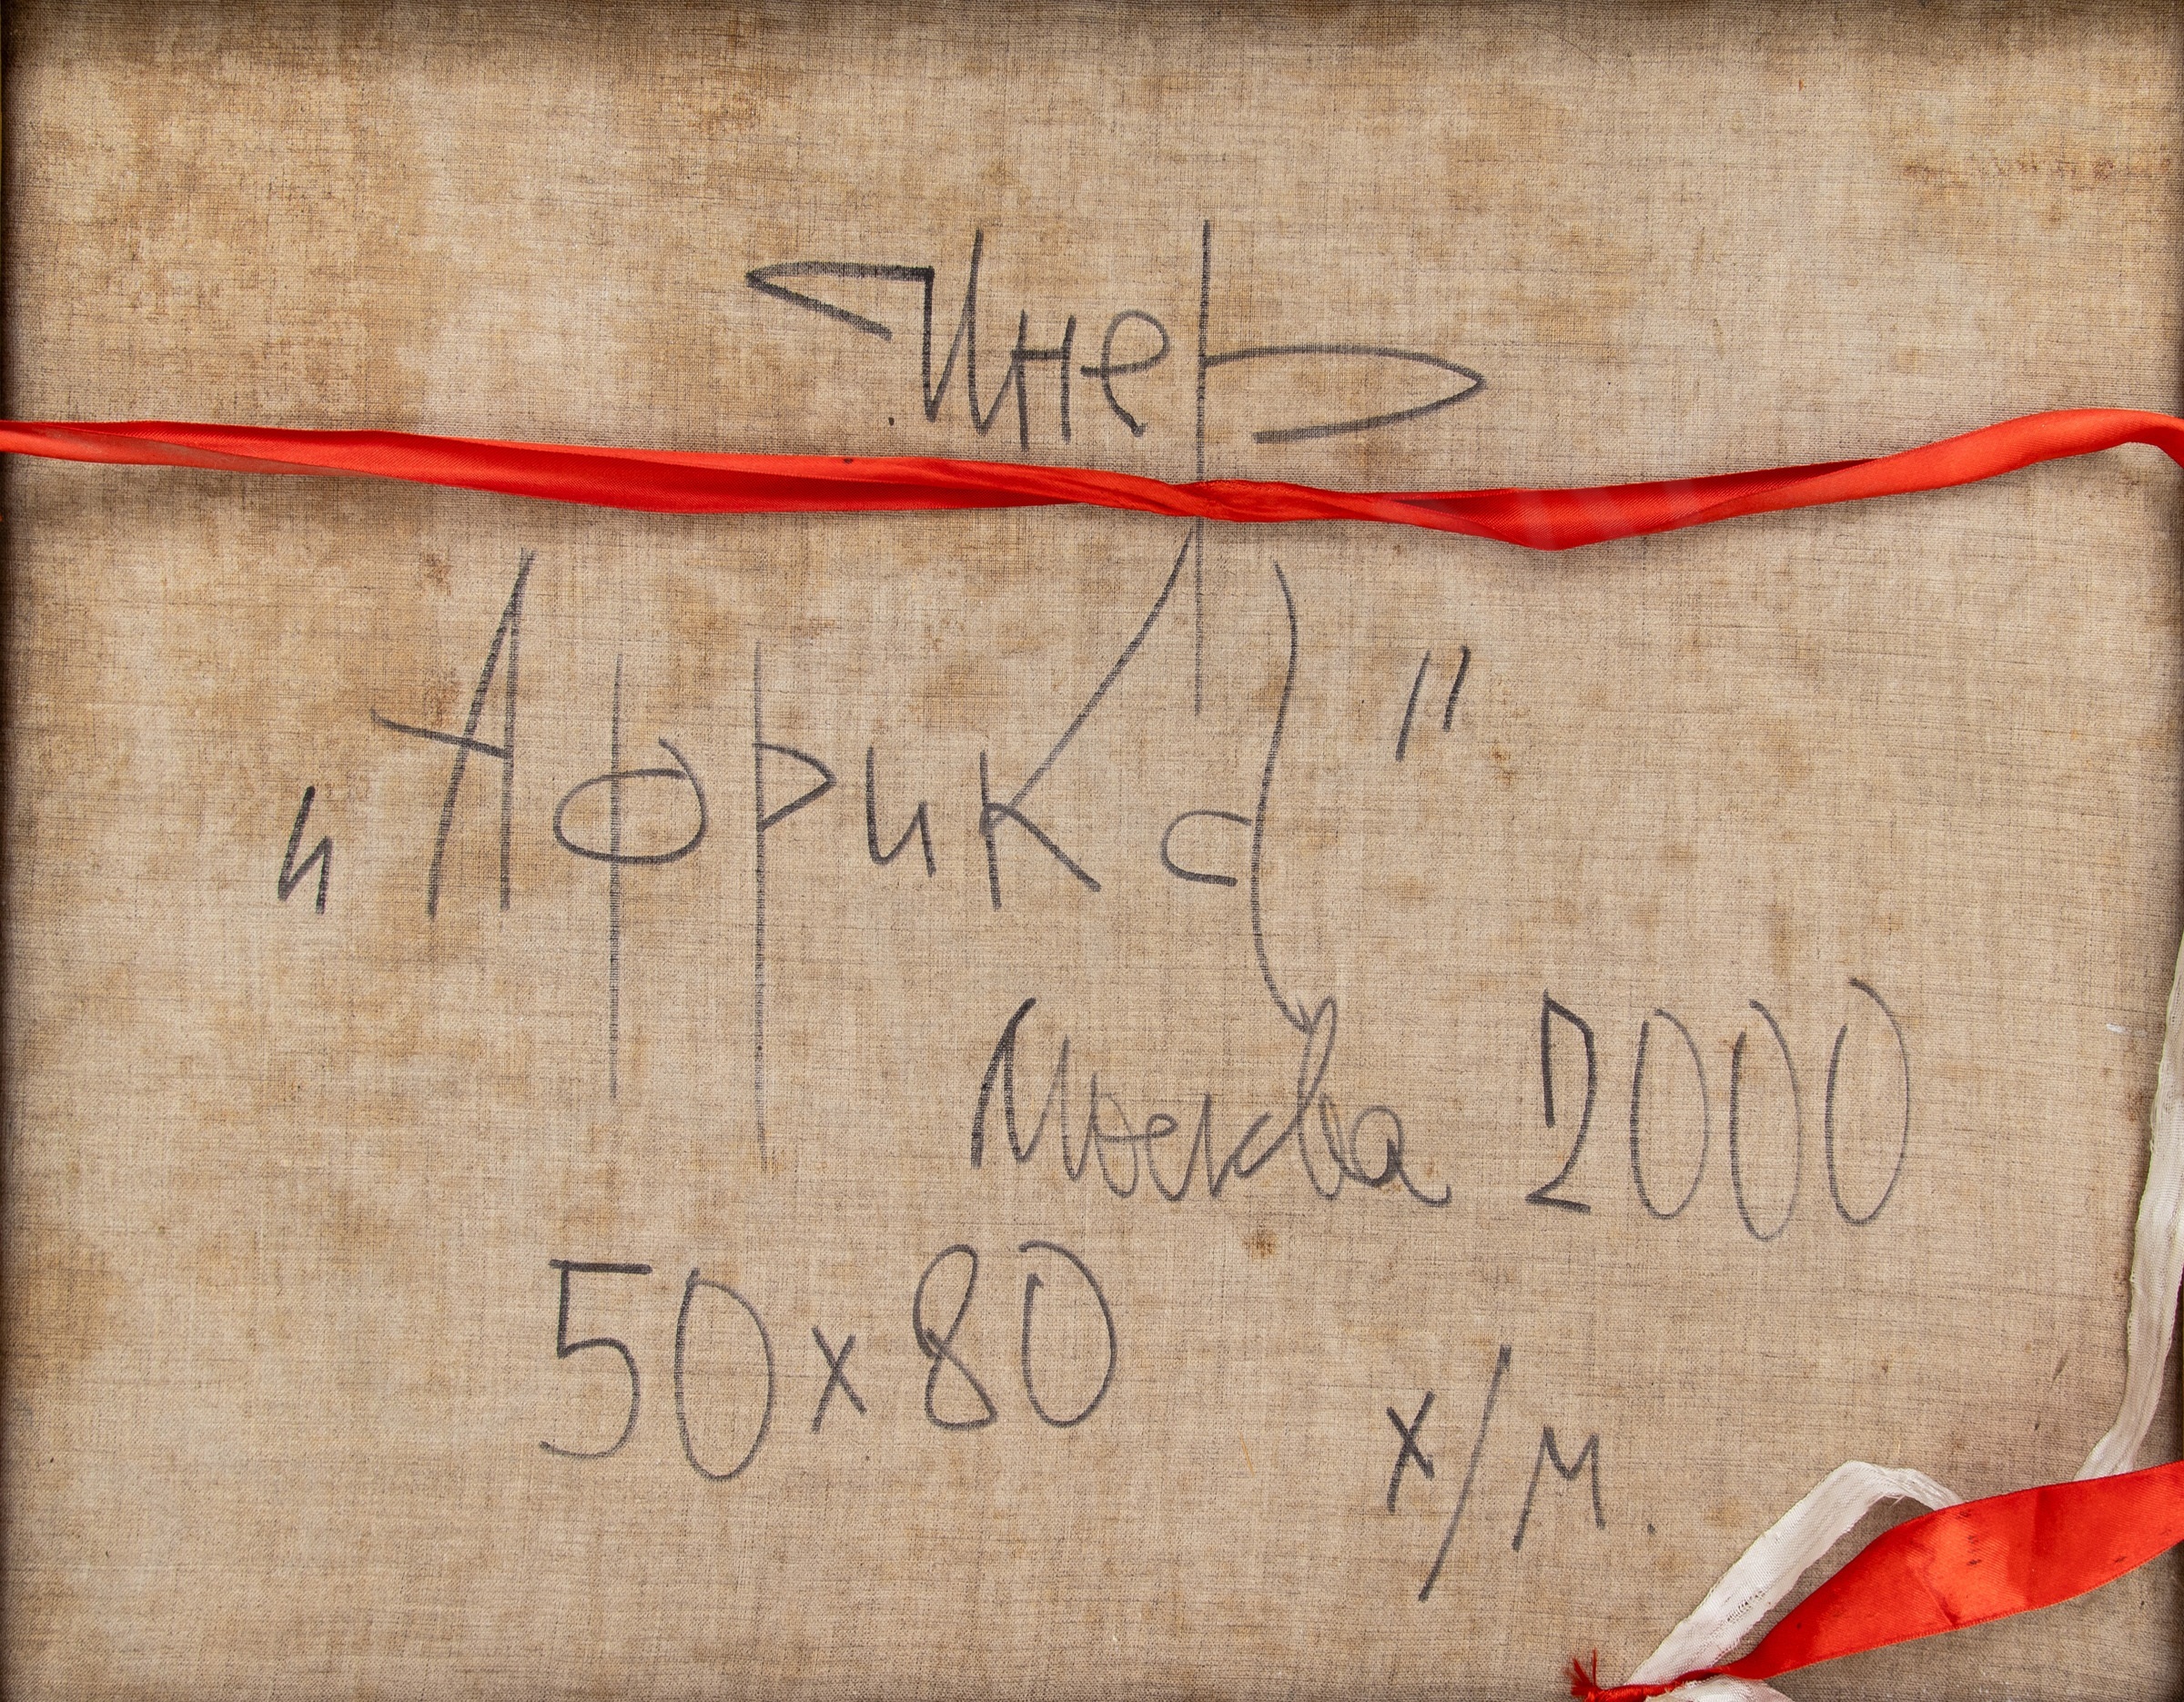 Инер
„Африка"
Москва 2000
50х80
х/м.